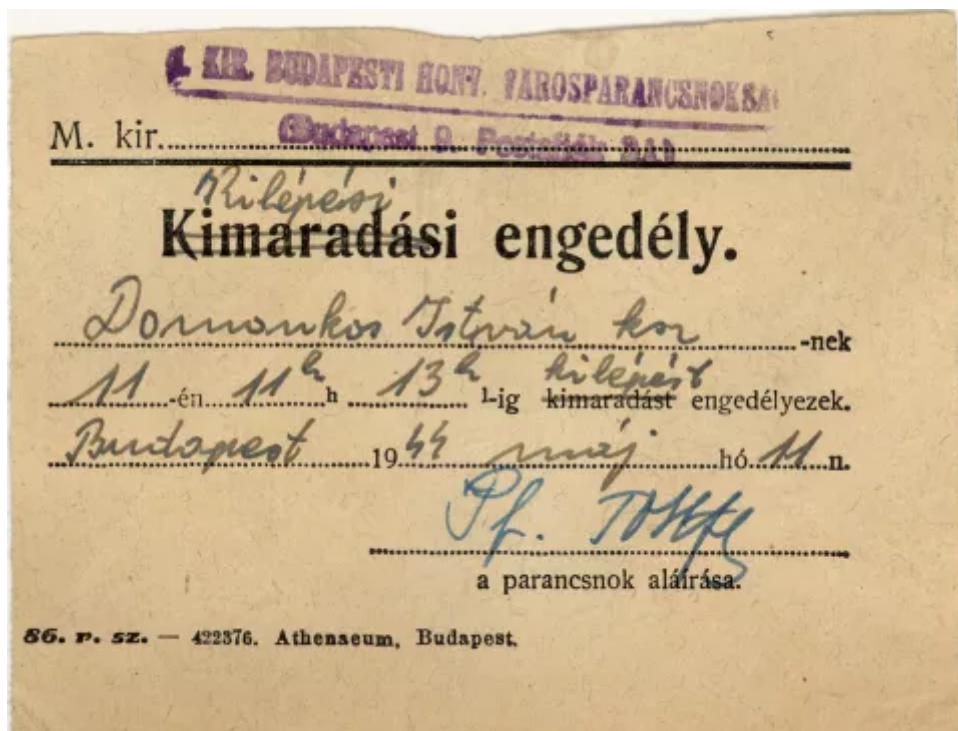 M. KIR. BUDAPESTI HONV. VÁROSPARANCSNOKSÁG
(Budapest 9. Postafiók
M. kir.
Kilépési
Kimaradási engedély.
Domonkos István -nek
11 -én 11 h h 13 h h-ig kilépést kimaradást engedélyezek.
Budapest 1944 máj hó 11 n.
Pf.
a parancsnok aláírása.
86. r. sz. — 422376. Athenaeum, Budapest.